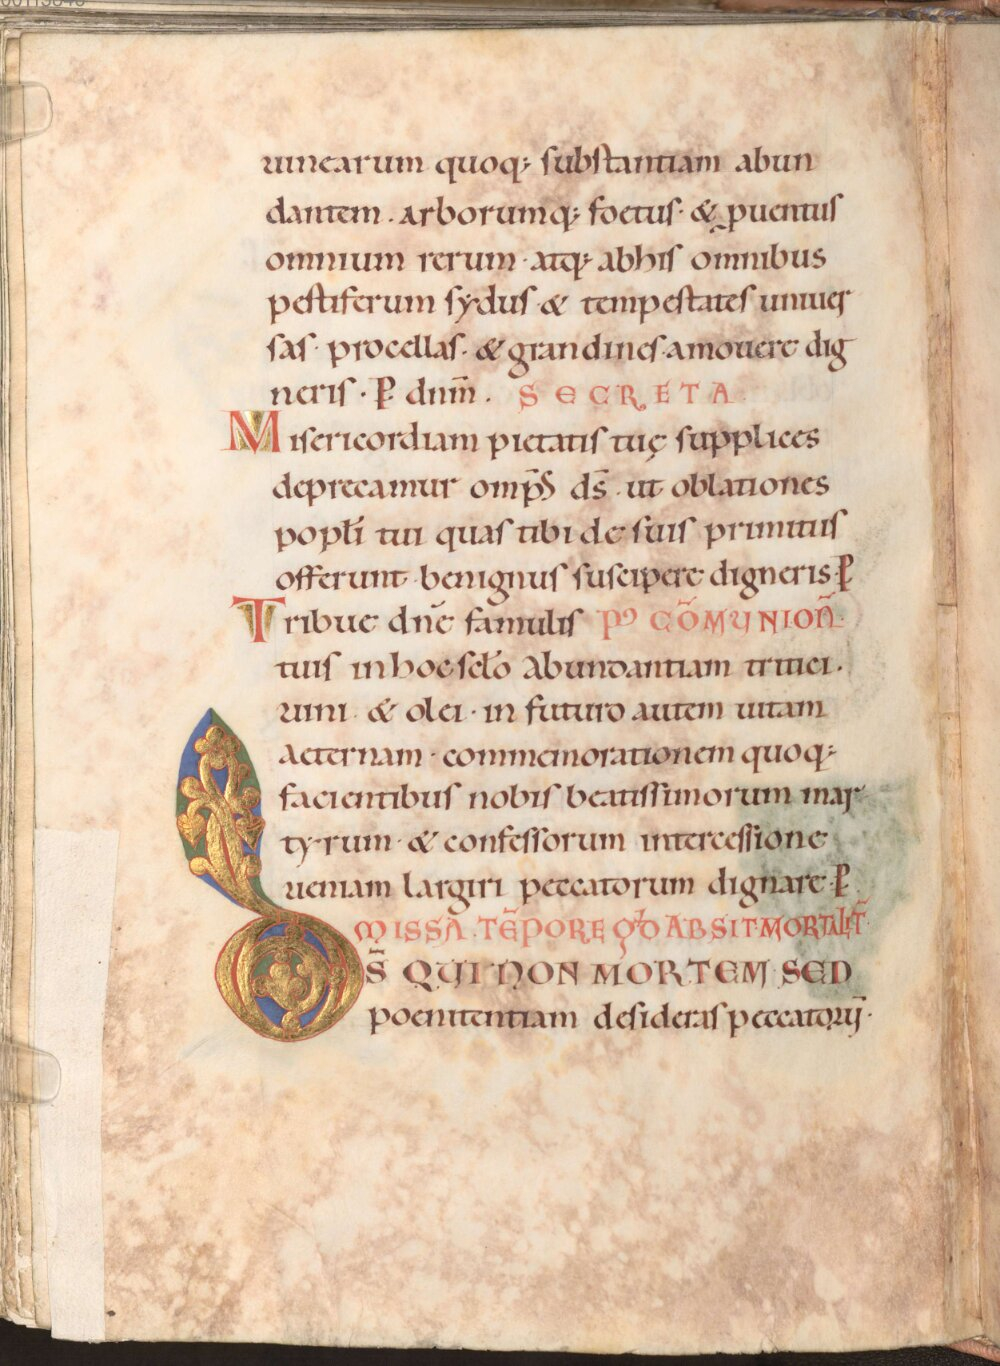 uinearum quoq; substantiam abun
dantem. Arborumq; foetus. & puentus
omnium rerum. atq; abhis omnibus
pestiferum sydus & tempestates uniuer
sas. procellas. & grandines. amouere dig
neris. P dnm̄. SECRETA
Misericordiam pietatis tuę supplices
deprecamur omp̄s ds̄. ut oblationes
popłi tui quas tibi de suis primitiis
offerunt. benignus suscipere digneris. P
Tribue dnē famulis Pꝰ CŌMUNIOÑ.
tuis inhoc scło Abundantiam tritici.
uini. & olei. in futuro autem uitam
aeternam. commemorationem quoq;
facientibus nobis beatissimorum mar
tyrum. & confessorum intercessione
ueniam largiri peccatorum dignare. P
MISSA TĒPORE QD ABSIT MORTALIT̄.
DS̄ QUI NON MORTEM SED
poenitentiam desideras peccatorū.